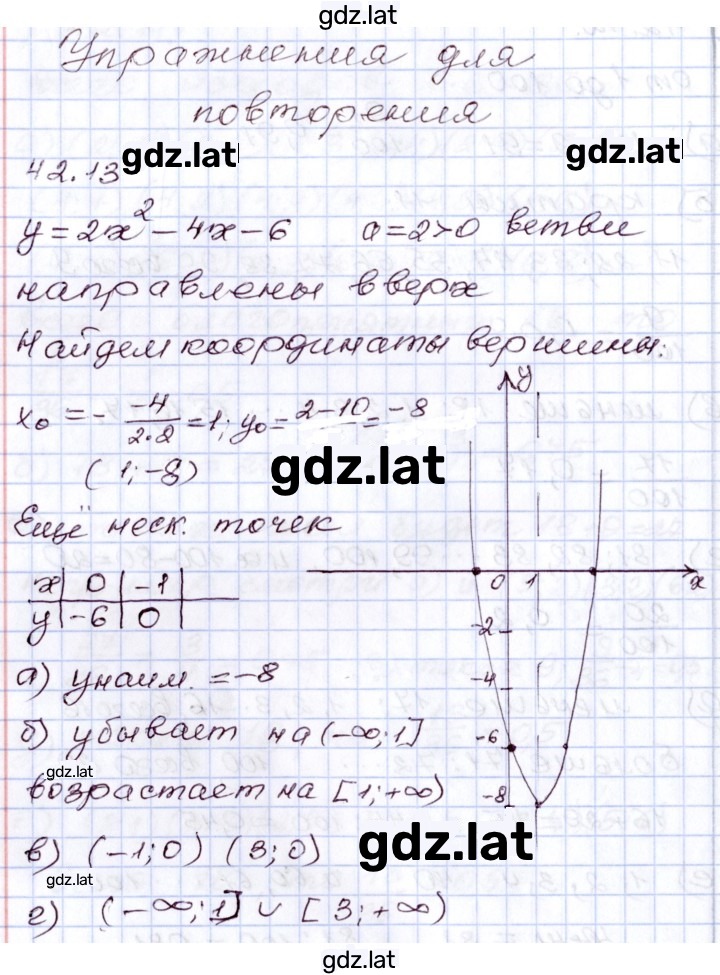 gdz.lat
Упражнения для
повторения
42.13 gdz.lat gdz.lat
y = 2x² - 4x - 6 a = 2 > 0 ветви
направлены вверх
Найдем координаты вершины:
x₀ = - -4/2·2 = 1; y₀ = 2-10 = -8
(1; -8)
gdz.lat
Ещё неск. точек
x | 0 | -1 |
y | -6 | 0 |
y
0 1 x
-2
-4
-6
-8
а) yнаим. = -8
б) убывает на (-∞; 1]
gdz.lat
возрастает на [1; +∞)
в) (-1; 0) (3; 0)
gdz.lat
gdz.lat
г) (-∞; 1] ∪ [3; +∞)
gdz.lat